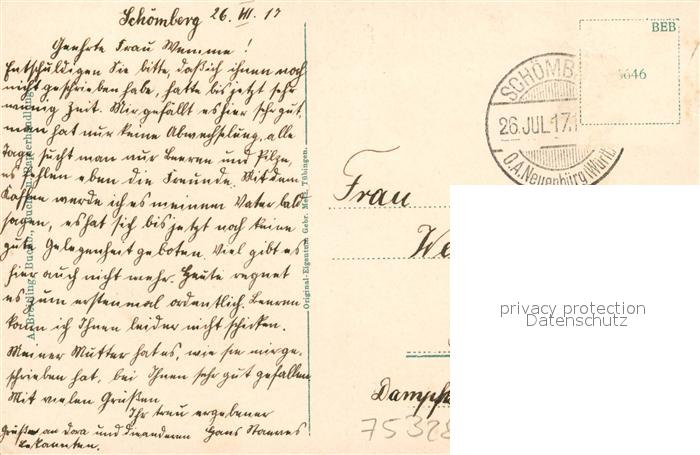 Schömberg 26. VII. 17
Geehrte Frau Wemme!
Entschuldigen Sie bitte, daß ich ihnen noch
nicht geschrieben habe, hatte bis jetzt sehr
wennig Zeit. Mir gefällt es hier sehr gut,
man hat nur keine Abwechselung, alle
Tage sucht man nur Beeren und Pilze,
es fehlen eben die Freunde. Mit dem
Kaffee werde ich es meinem Vater bald
sagen, es hat sich bis jetzt noch keine
gute Gelegenheit geboten. Viel gibt es
hier auch nicht mehr. Heute regnet
es zum erstenmal ordentlich. Beeren
kann ich Ihnen leider nicht schicken.
Meiner Mutter hat es, wie sie mir ge-
schrieben hat, bei Ihnen sehr gut gefallen.
Mit vielen Grüßen
Ihr treu ergebener
Hans
Grüße an Dora und die anderen
Bekannten.
Original-Eigentum Gebr. Metz, Tübingen.
BEB
SCHÖMB
26.JUL.17.
O.A.Neuenbürg (Württ.)
Frau
We
Dampf
7532
privacy protection
Datenschutz